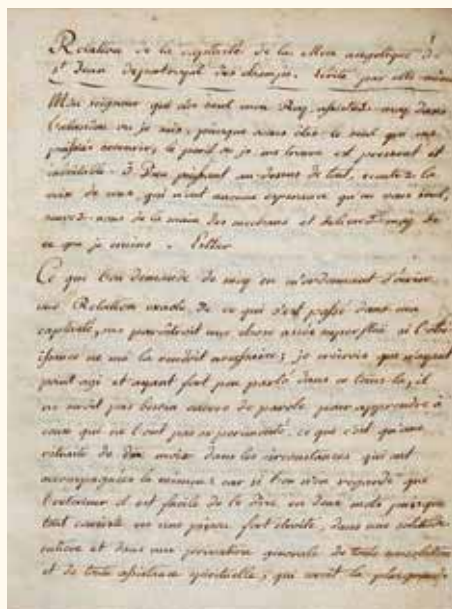 Relation de la captivité de la Mere angelique de
St Jean de portroyal des champs. Ecrite par elle même
Mon seigneur qui etes seul mon Roy, assistez-moy dans
l'abandon où je suis, puisque vous êtes le seul qui me
puissiez secourir, le peril où je me trouve est present et
inévitable. Dieu puissant au dessus de tout, ecoutez la
voix de ceux qui n'ont aucune esperance qu'en vous seul,
sauvez-nous de la main des mechans et delivrez moy de
ce que je crains. Esther
Ce que l'on demande de moy en m'ordonnant d'écrire
une Relation exacte de ce qui s'est passé dans ma
captivité, me paroîtroit une chose assez superflue si l'obé-
issance ne me la rendoit necessaire; je croirois que n'ayant
point agi et ayant fort peu parlé dans ce tems-la, il
ne seroit pas besoin encore de parole pour apprendre à
ceux qui ne l'ont pas experimenté, ce que c'est qu'une
retraite de dix mois dans les circonstances qui ont
accompagnées la mienne; car si l'on n'en regarde que
l'exterieur il est facile de le dire en deux mots puisque
tout consiste en une prison fort étroite, dans une solitude
entiere et dans une privation generale de toute consolation
et de toute assistance spirituelle, qui sont la plus grande